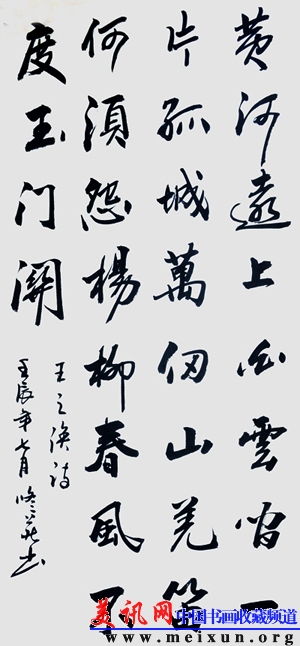 黄河遠上白雲间一
片孤城萬仞山羌笛
何須怨楊柳春風不
度玉门關
王之渙诗
壬辰年七月 书
美讯网 中国书画收藏频道
www.meixun.org